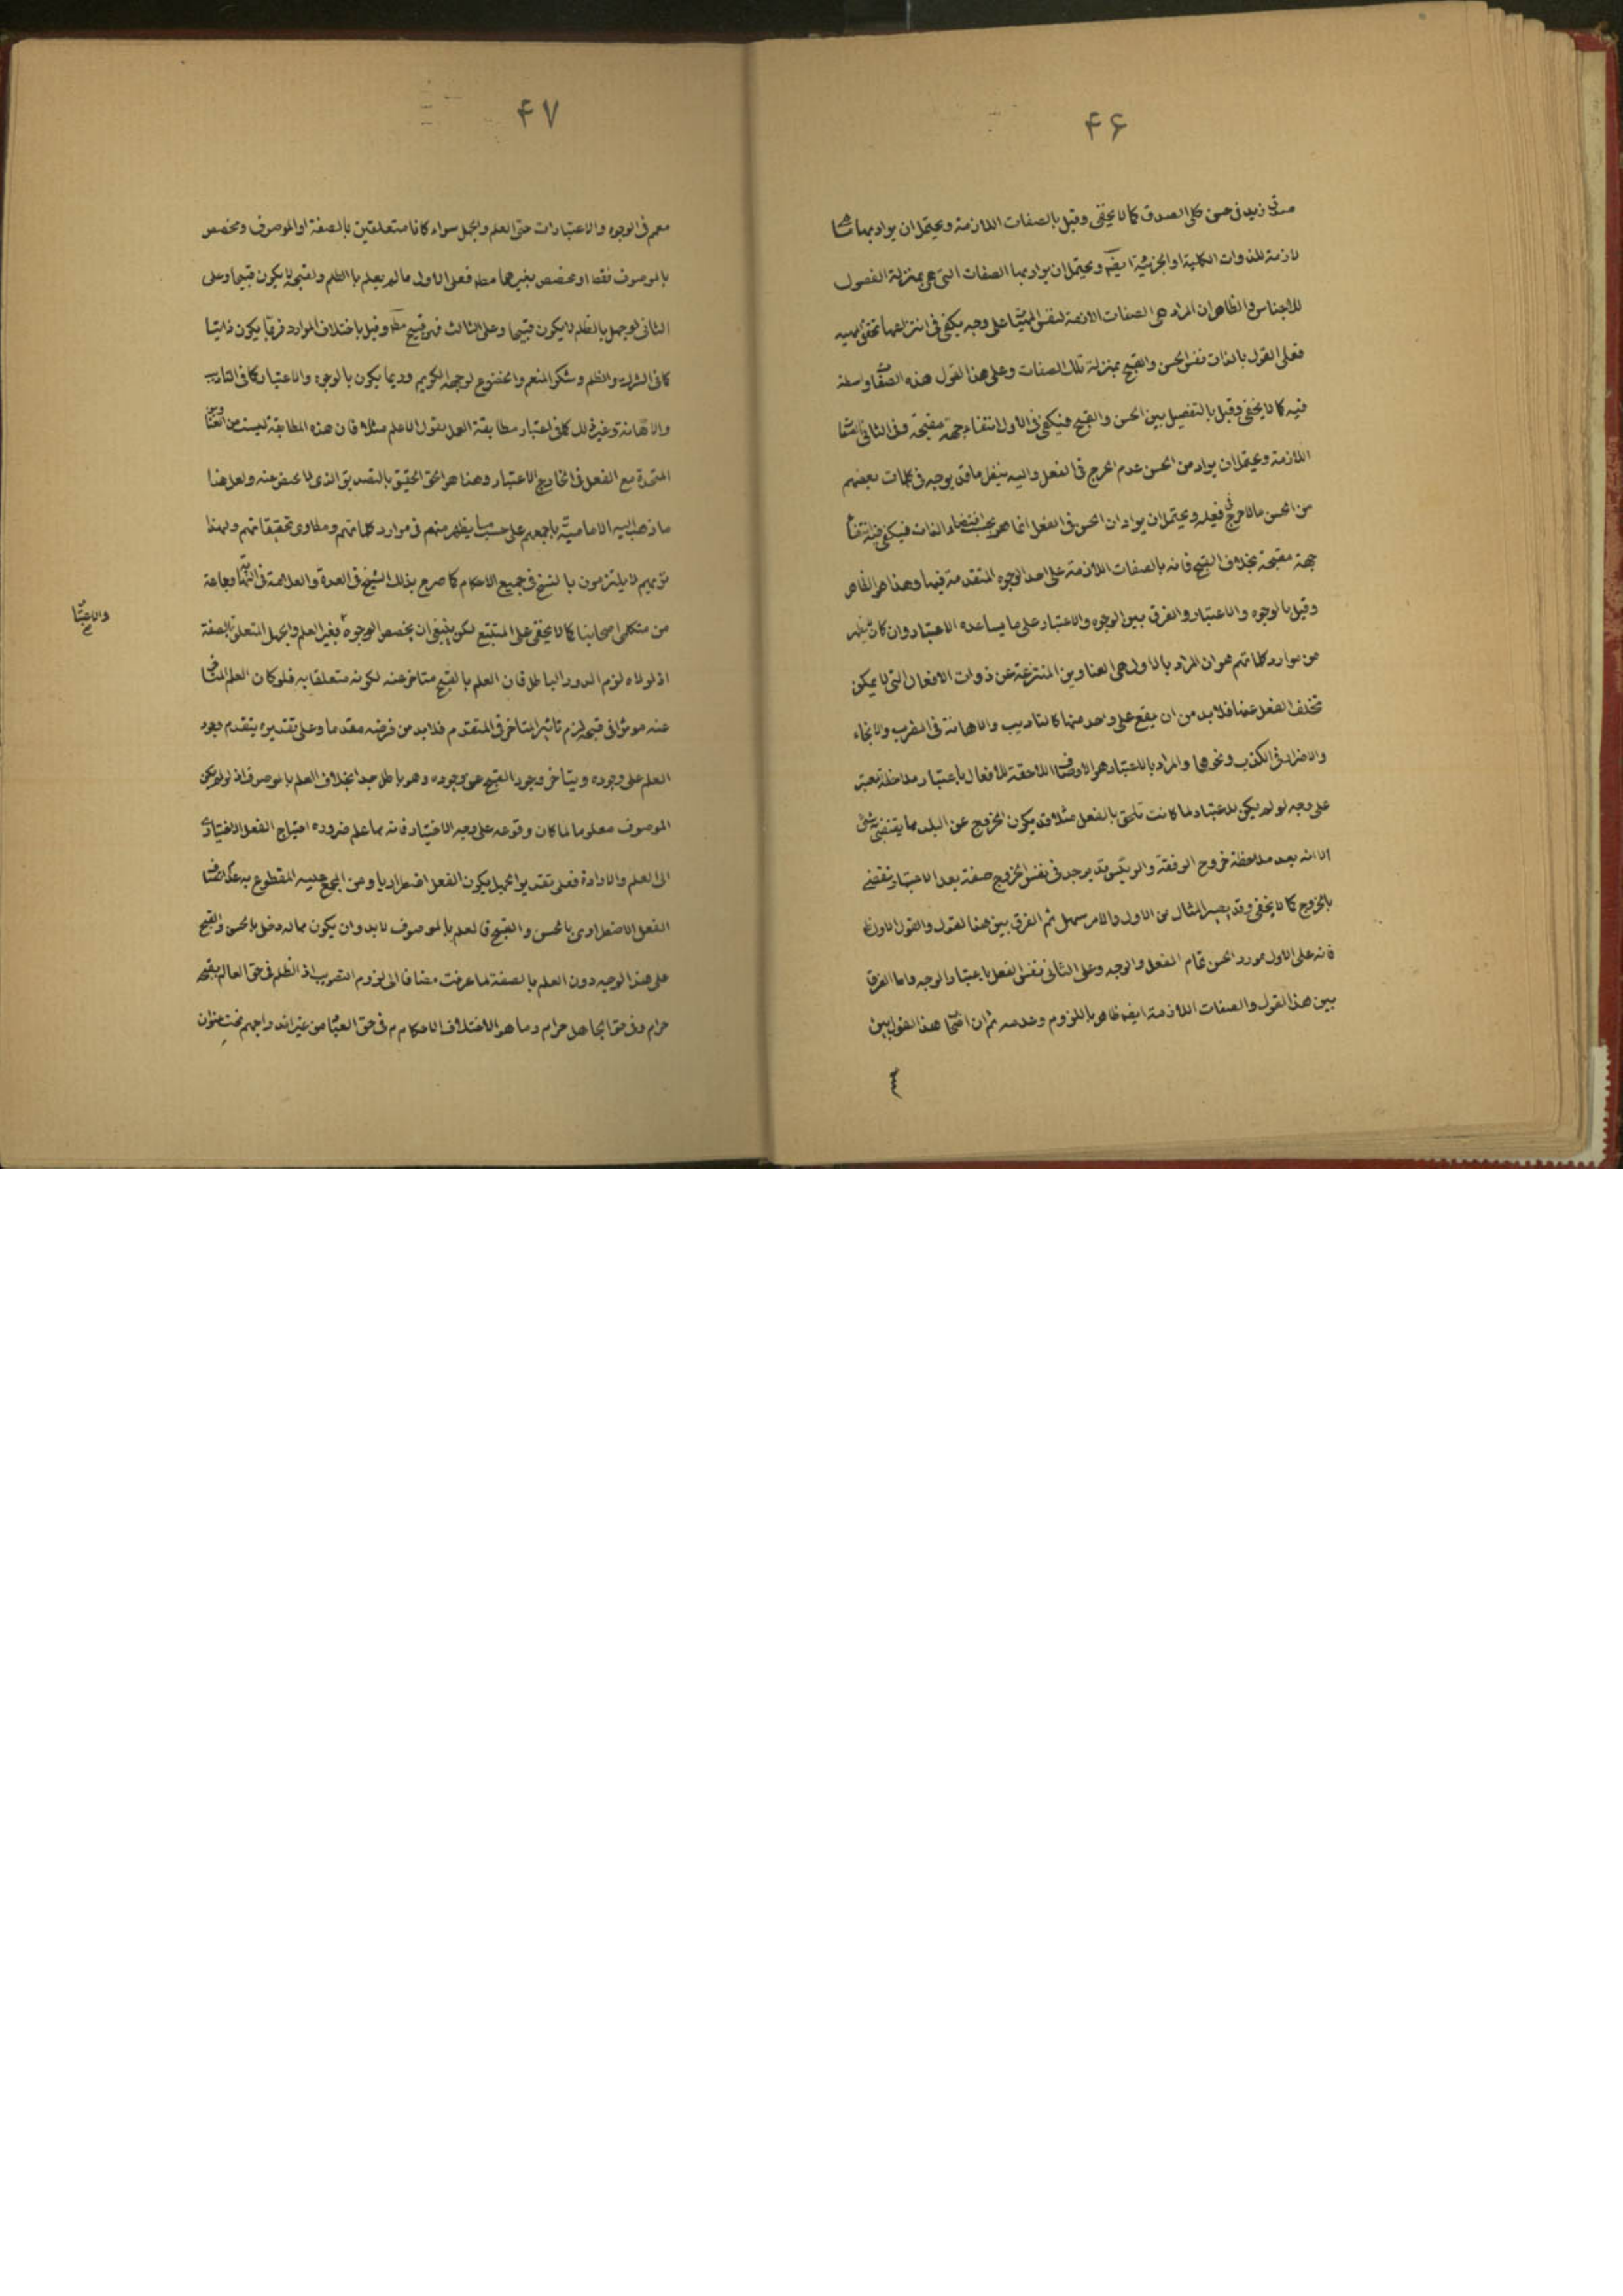 ۴۶
في زيد في حسن كلي الصدق كما لا يخفى وقيل بالصفات اللازمة ويحتمل ان يراد بها
لازمة للذوات الكلية او الجزئية ايضا ويحتمل ان يراد بها الصفات التي هي بمنزلة الفصول
للاجناس والظاهر ان المراد هي الصفات لنفس على وجه يكفي في انتزاعها تحقق
فعلى القول بالذات نفس الحسن والقبح بمنزلة تلك الصفات وعلى هذا القول هذه واسطة
فيه كما لا يخفى وقيل بالتفصيل بين الحسن والقبح فيكفي في الاول انتفاء جهة مقبحة وفي الثاني
اللازمة ويحتمل ان يراد من الحسن عدم الحرج في الفعل واليه ينظر ما قد يوجد في كلمات بعضهم
من الحسن ما لا حرج في فعله ويحتمل ان يراد ان الحسن في الفعل انما هو بحسب اقتضاء الذات فيكفي فيه
جهة مقبحة بخلاف القبح فانه بالصفات اللازمة على احد الوجوه المتقدمة فيها وهذا هو الظاهر
وقيل بالوجوه والاعتبار والفرق بين الوجوه والاعتبار على ما يساعده الاعتبار وان كان
من موارد كلماتهم هو ان المراد بالاول هي العناوين المنتزعة عن ذوات الافعال التي لا يمكن
تخلف الفعل عنها فلا بد من ان يقع على واحد منها كالتاديب والاهانة في الضرب والانجاء
والاضرار في الكذب ونحوها والمراد بالاعتبار هو الاوصاف اللاحقة للافعال باعتبار مداخلة
على وجه لو لم يكن للاعتبار لما كانت تلحق بالفعل مثلا قد يكون الخروج عن البلد مما يقتضيه شئ
الا انه بعد ملاحظة خروج الرفقة قد يوجد في نفس الخروج صفة بعد الاعتبار تقضي
بالخروج كما لا يخفى وقد يصير المثال من الاول والامر سهل ثم الفرق بين هذا القول والقول الاول
فانه على الاول مورد الحسن تمام الفعل والوجه وعلى الثاني نفس الفعل باعتبار الوجه واما الفرق
بين هذا القول والصفات اللازمة ايضا ظاهر باللزوم وعدمه ثم ان هذا القول بين
۴۷
معمم في الوجوه والاعتبارات حتى العلم والجهل سواء كانا متعلقين بالصفة او الموصوف ومخصص
بالموصوف فقط او مخصص بغيرهما مطلقا فعلى الاول ما لم يعلم بالظلم ولقبحه لا يكون قبيحا وعلى
الثاني لو جهل بالظلم لا يكون قبيحا وعلى الثالث فهو قبيح مطلقا وقيل باختلاف الموارد فربما يكون ذاتيا
كما في الشرك والظلم وشكر المنعم والخضوع لوجهه الكريم وربما يكون بالوجوه والاعتبار كما في التاديب
والاهانة وغير ذلك كما في اعتبار مطابقة العمل بقول الاعلم مثلا فان هذه المطابقة ليست من
المتحدة مع الفعل في الخارج الاعتبار وهذا هو الحق الحقيق بالتصديق الذي لا محيص عنه ولعل هذا
ما ذهب اليه الامامية باجمعهم على حسب ما يظهر منهم في موارد كلماتهم ومطاوي تحقيقاتهم ولهذا
تريهم لا يلتزمون بالنسخ في جميع الاحكام كما صرح بذلك الشيخ في العدة والعلامة في وجماعة
من متكلمي اصحابنا كما لا يخفى على المتتبع لكن ينبغي ان يخصص الوجوه بغير العلم والجهل المتعلق بالصفة
والاعتبار
اذ لولاه لزم الدور الباطل فان العلم بالقبح متاخر عنه لكونه متعلقا به فلو كان العلم
عنه مؤثرا في قبحه لزم تاثير المتاخر في المتقدم فلا بد من فرضه مقدما وعلى تقديره يتقدم وجود
العلم على وجوده ويتاخر وجود القبح عن وجوده وهو باطل جدا بخلاف العلم بالموصوف اذ لو لم يكن
الموصوف معلوما لما كان وقوعه على وجه الاختيار فانه مما علم ضرورة احتياج الفعل الاختياري
الى العلم والارادة فعلى تقدير الجهل يكون الفعل اضطراريا ومن المجمع عليه المقطوع به عدم اتصاف
الفعل الاضطراري بالحسن والقبح فالعلم بالموصوف لا بد وان يكون مما له دخل بالحسن والقبح
على هذا الوجه دون العلم بالصفة لما عرفت مضافا الى لزوم التصويب اذ الظلم في حق العالم بقبحه
حرام وفي حق الجاهل حرام وما هو الا اختلاف الاحكام في حق العباد من غير اندراجهم تحت عنوان